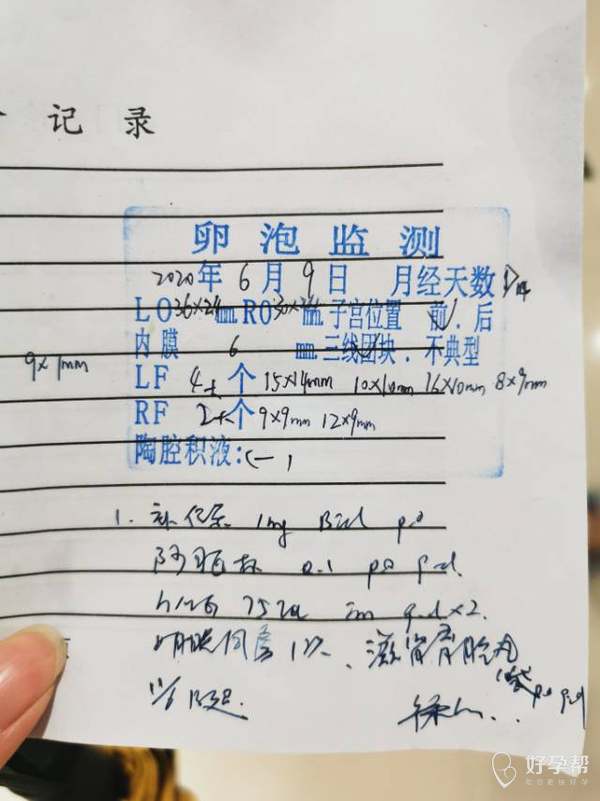 记录
卵泡监测
2020年 6月 9日 月经天数 D14
LO 36×24 mm RO mm 子宫位置 前.后
内膜 6 mm 三线团块.不典型
9×7mm
LF 4+ 个 15×14mm 10×10mm 16×10mm 8×9mm
RF 2+ 个 9×9mm 12×9mm
陶腔积液:(-)
1. 补佳乐 1mg Bid po
阿司匹林 0.1 po qd
HMG 75u im qd×2.
滋肾育胎丸
po
好孕帮